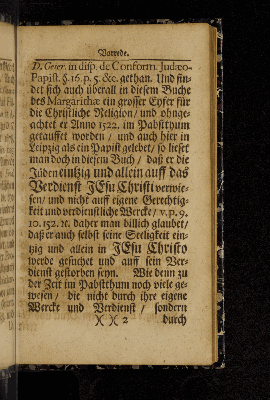 Vorrede.
D. Geier. in disp. de Conform. Judæo-
Papist. §. 16. p. 5. &c. gethan. Und fin-
det sich auch überall in diesem Buche
des Margarithæ ein grosser Eyfer für
die Christliche Religion/ und ohnge-
achtet er Anno 1522. im Pabstthum
getaufft worden / und auch hier in
Leipzig als ein Papist gelebet/ so lieset
man doch in diesem Buch / daß er die
Jüden eintzig und allein auff das
Verdienst JEsu Christi verwie-
sen/ und nicht auff eigene Gerechtig-
keit und verdienstliche Wercke/ v. p. 9.
10. 152. ꝛc. daher man billich glaubet/
daß er auch selbst seine Seeligkeit ein-
tzig und allein in JEsu Christo
werde gesuchet und auff sein Ver-
dienst gestorben seyn. Wie denn zu
der Zeit im Pabstthum noch viele ge-
wesen/ die nicht durch ihre eigene
Wercke und Verdienst/ sondern
)( )( 2 durch